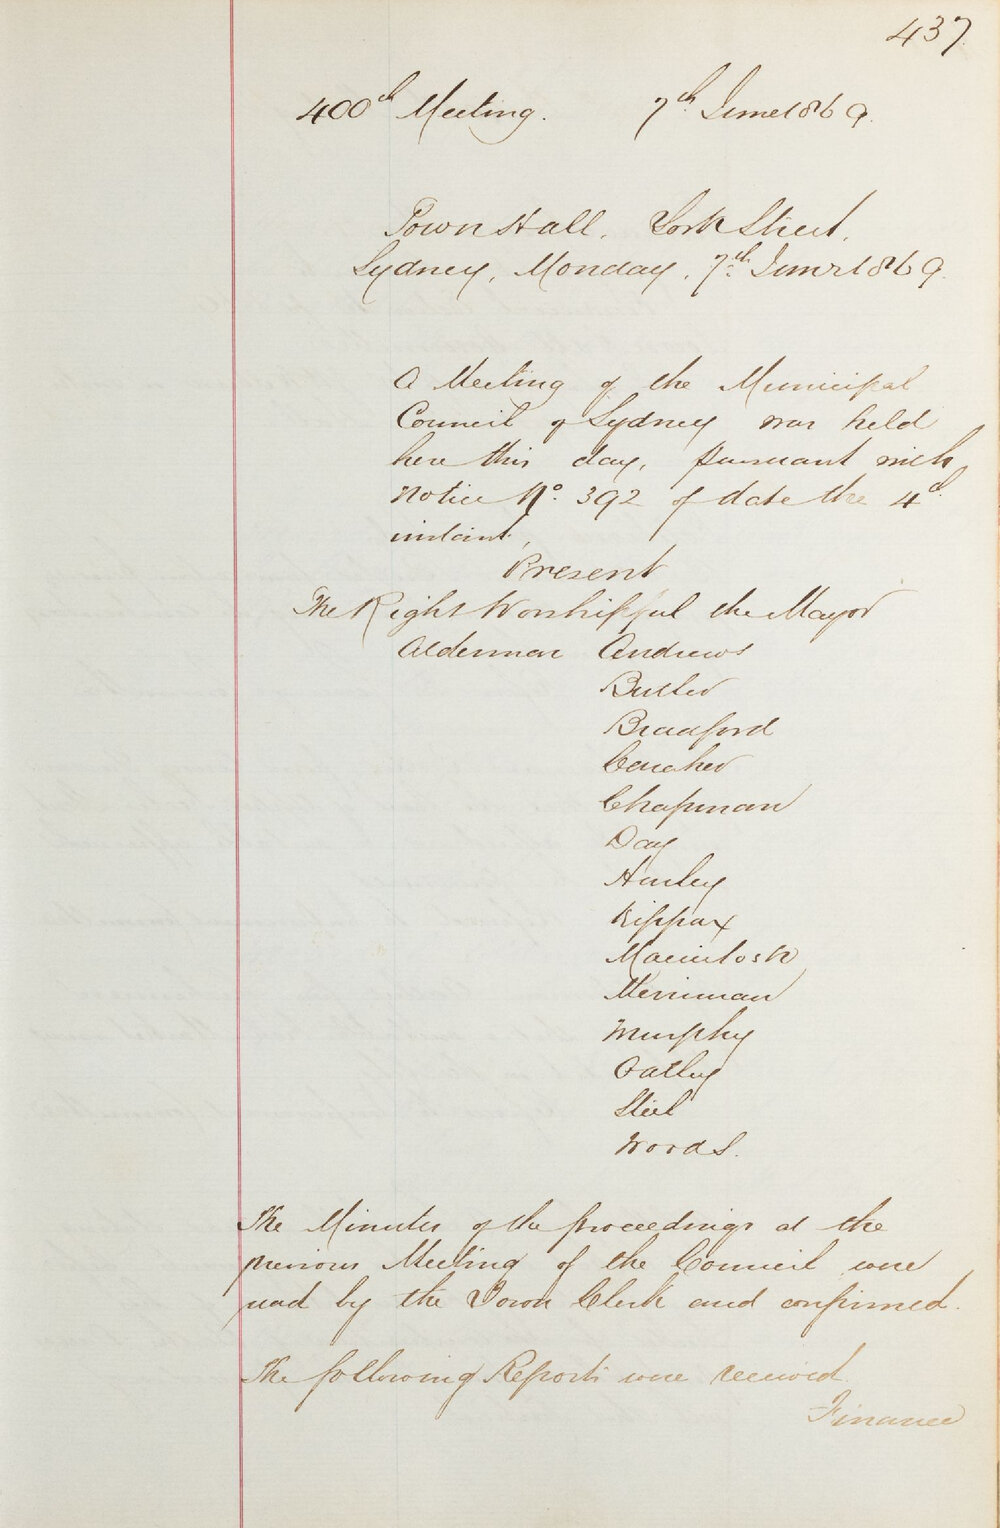 437
400th Meeting. 7th June 1869.
Town Hall, York Street,
Sydney, Monday, 7th June 1869.
A Meeting of the Municipal
Council of Sydney was held
here this day, pursuant with
Notice No. 392 of date the 4th
instant,
Present
The Right Worshipful the Mayor
Alderman Andrews
Butler
Bradford
Caraher
Chapman
Day
Hurley
Kippax
Macintosh
Merriman
Murphy
Oatley
Steel
Woods.
The Minutes of the proceedings at the
previous Meeting of the Council were
read by the Town Clerk and confirmed.
The following Reports were received.
Finance